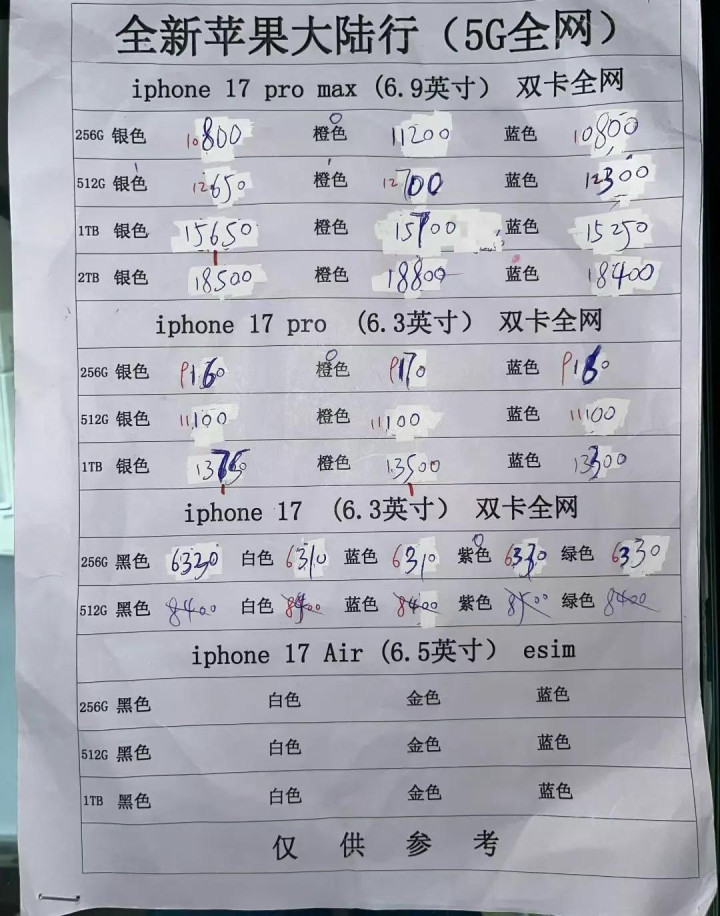 全新苹果大陆行（5G全网）
iphone 17 pro max (6.9英寸） 双卡全网
256G 银色 10800 橙色 11200 蓝色 10800
512G 银色 12650 橙色 12700 蓝色 12300
1TB 银色 15650 橙色 15700 蓝色 15250
2TB 银色 18500 橙色 18800 蓝色 18400
iphone 17 pro （6.3英寸） 双卡全网
256G 银色 橙色 蓝色
512G 银色 11100 橙色 11100 蓝色 11100
1TB 银色 橙色 13500 蓝色 13300
iphone 17 （6.3英寸） 双卡全网
256G 黑色 6330 白色 6310 蓝色 6310 紫色 6330 绿色 6330
512G 黑色 8400 白色 8400 蓝色 8400 紫色 8500 绿色 8400
iphone 17 Air (6.5英寸） esim
256G 黑色 白色 金色 蓝色
512G 黑色 白色 金色 蓝色
1TB 黑色 白色 金色 蓝色
仅 供 参 考